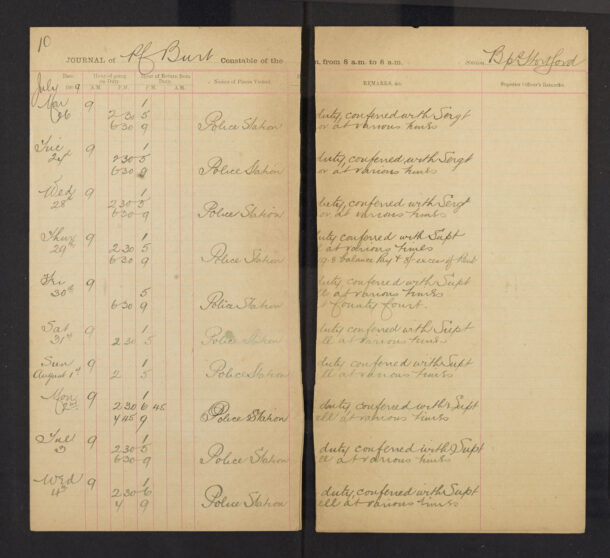 10
JOURNAL of PC Burt Constable of the
m. from 8 a.m. to 8 a.m. Station Bp Stortford
Date Hour of going on Duty. Hour of Return from Duty. Names of Places Visited. REMARKS, &c. Superior Officer's Remarks.
July 1909 A.M. P.M. P.M. A.M.
Mon 9 1 duty, conferred with Sergt
26 2-30 5 or at various times
6-30 9 Police Station
Tue 9 1
27th 2-30 5 duty, conferred with Sergt
6-30 9 Police Station or at various times
Wed 9 1
28th 2-30 5 duty, conferred with Sergt
6-30 9 Police Station or at various times
Thur 9 1 duty conferred with Supt
29th 2 30 5 at various times
6-30 9 Police Station balance Pay & excess of Rent
Fri 9 duty conferred with Supt
30th 5 ll at various times
6-30 9 Police Station County Court.
Sat 9 1 duty conferred with Supt
31st 2 30 5 Police Station ll at various times
Sun 9 1 duty conferred with Supt
August 1st 2 5 Police Station ll at various times
Mon 9 1
2nd 2 30 6 45 duty, conferred with Supt
7 45 9 Police Station ll at various times
Tue 9 1
3 2-30 5 duty conferred with Supt
6-30 9 Police Station ll at various times
Wed 9 1
4th 2-30 6 duty, conferred with Supt
7 9 Police Station ll at various times